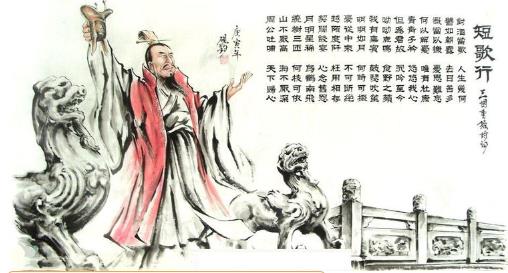 短歌行
對酒當歌 人生幾何
譬如朝露 去日苦多
慨當以慷 憂思難忘
何以解憂 唯有杜康
青青子衿 悠悠我心
但為君故 沉吟至今
呦呦鹿鳴 食野之蘋
我有嘉賓 鼓瑟吹笙
明明如月 何時可掇
憂從中來 不可斷絕
越陌度阡 枉用相存
契闊談讌 心念舊恩
月明星稀 烏鵲南飛
繞樹三匝 何枝可依
山不厭高 海不厭深
周公吐哺 天下歸心
庚寅年